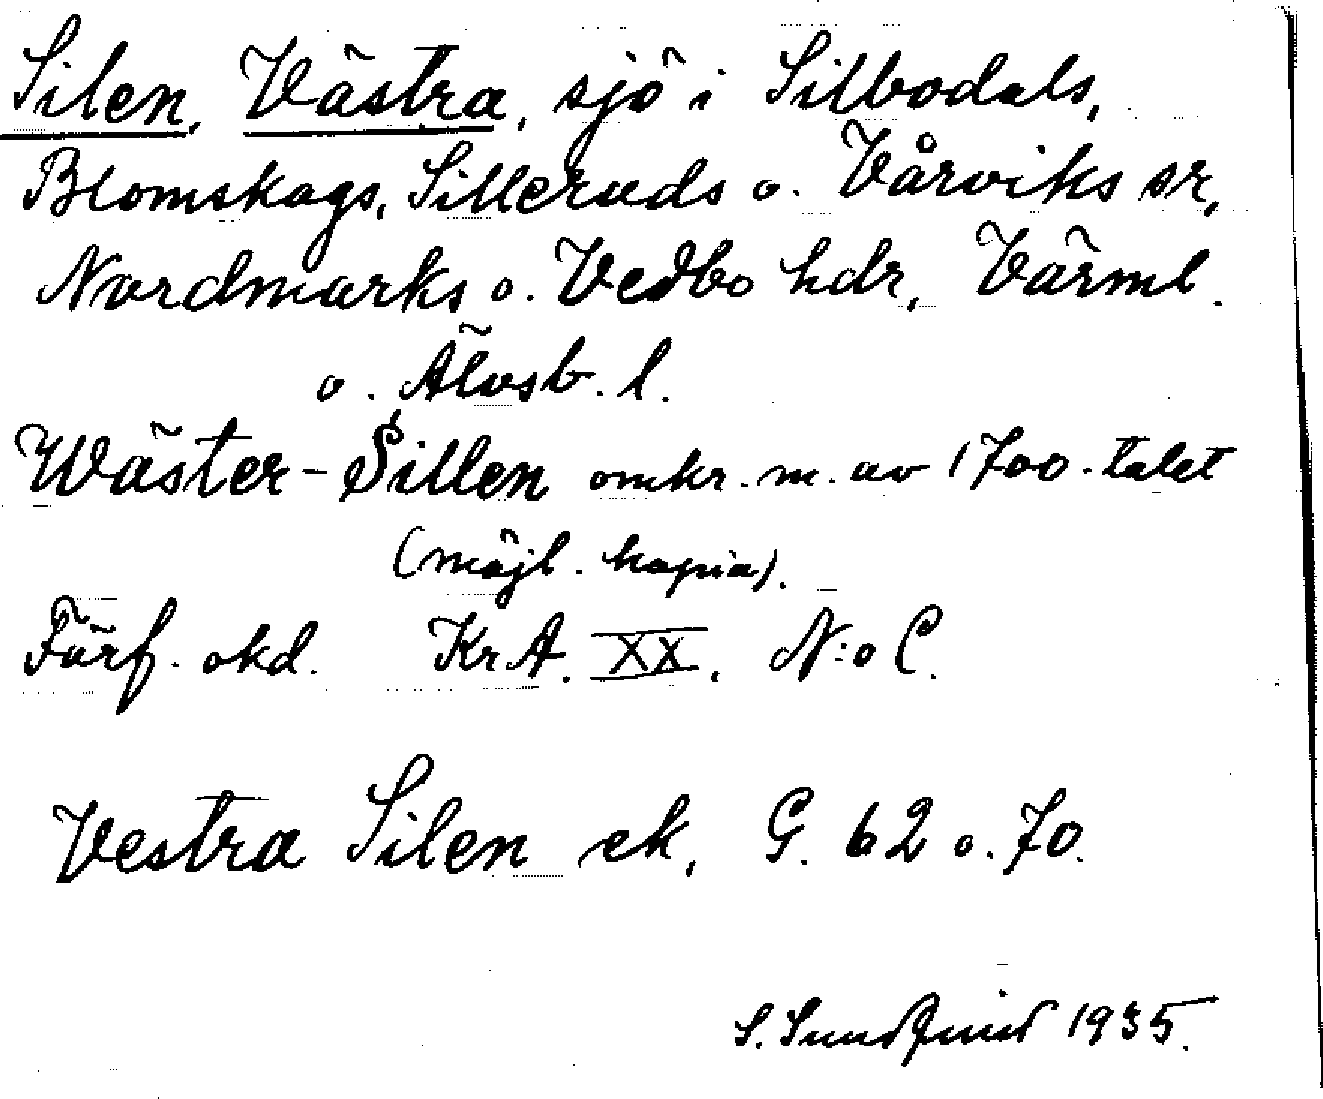 Silen, Västra, sjö i Silbodals,
Blomskogs, Silleruds o. Vårviks sr,
Nordmarks o. Vedbo hdr, Värml.
o. Älvsb. l.
Wäster-Sillen omkr. m. av 1700-talet
(möjl. kopia).
Förf. okd. KrA. XX. N:o C.
Vestra Silen ek, G. 62 o. 70.
S. Sundqvist 1935.